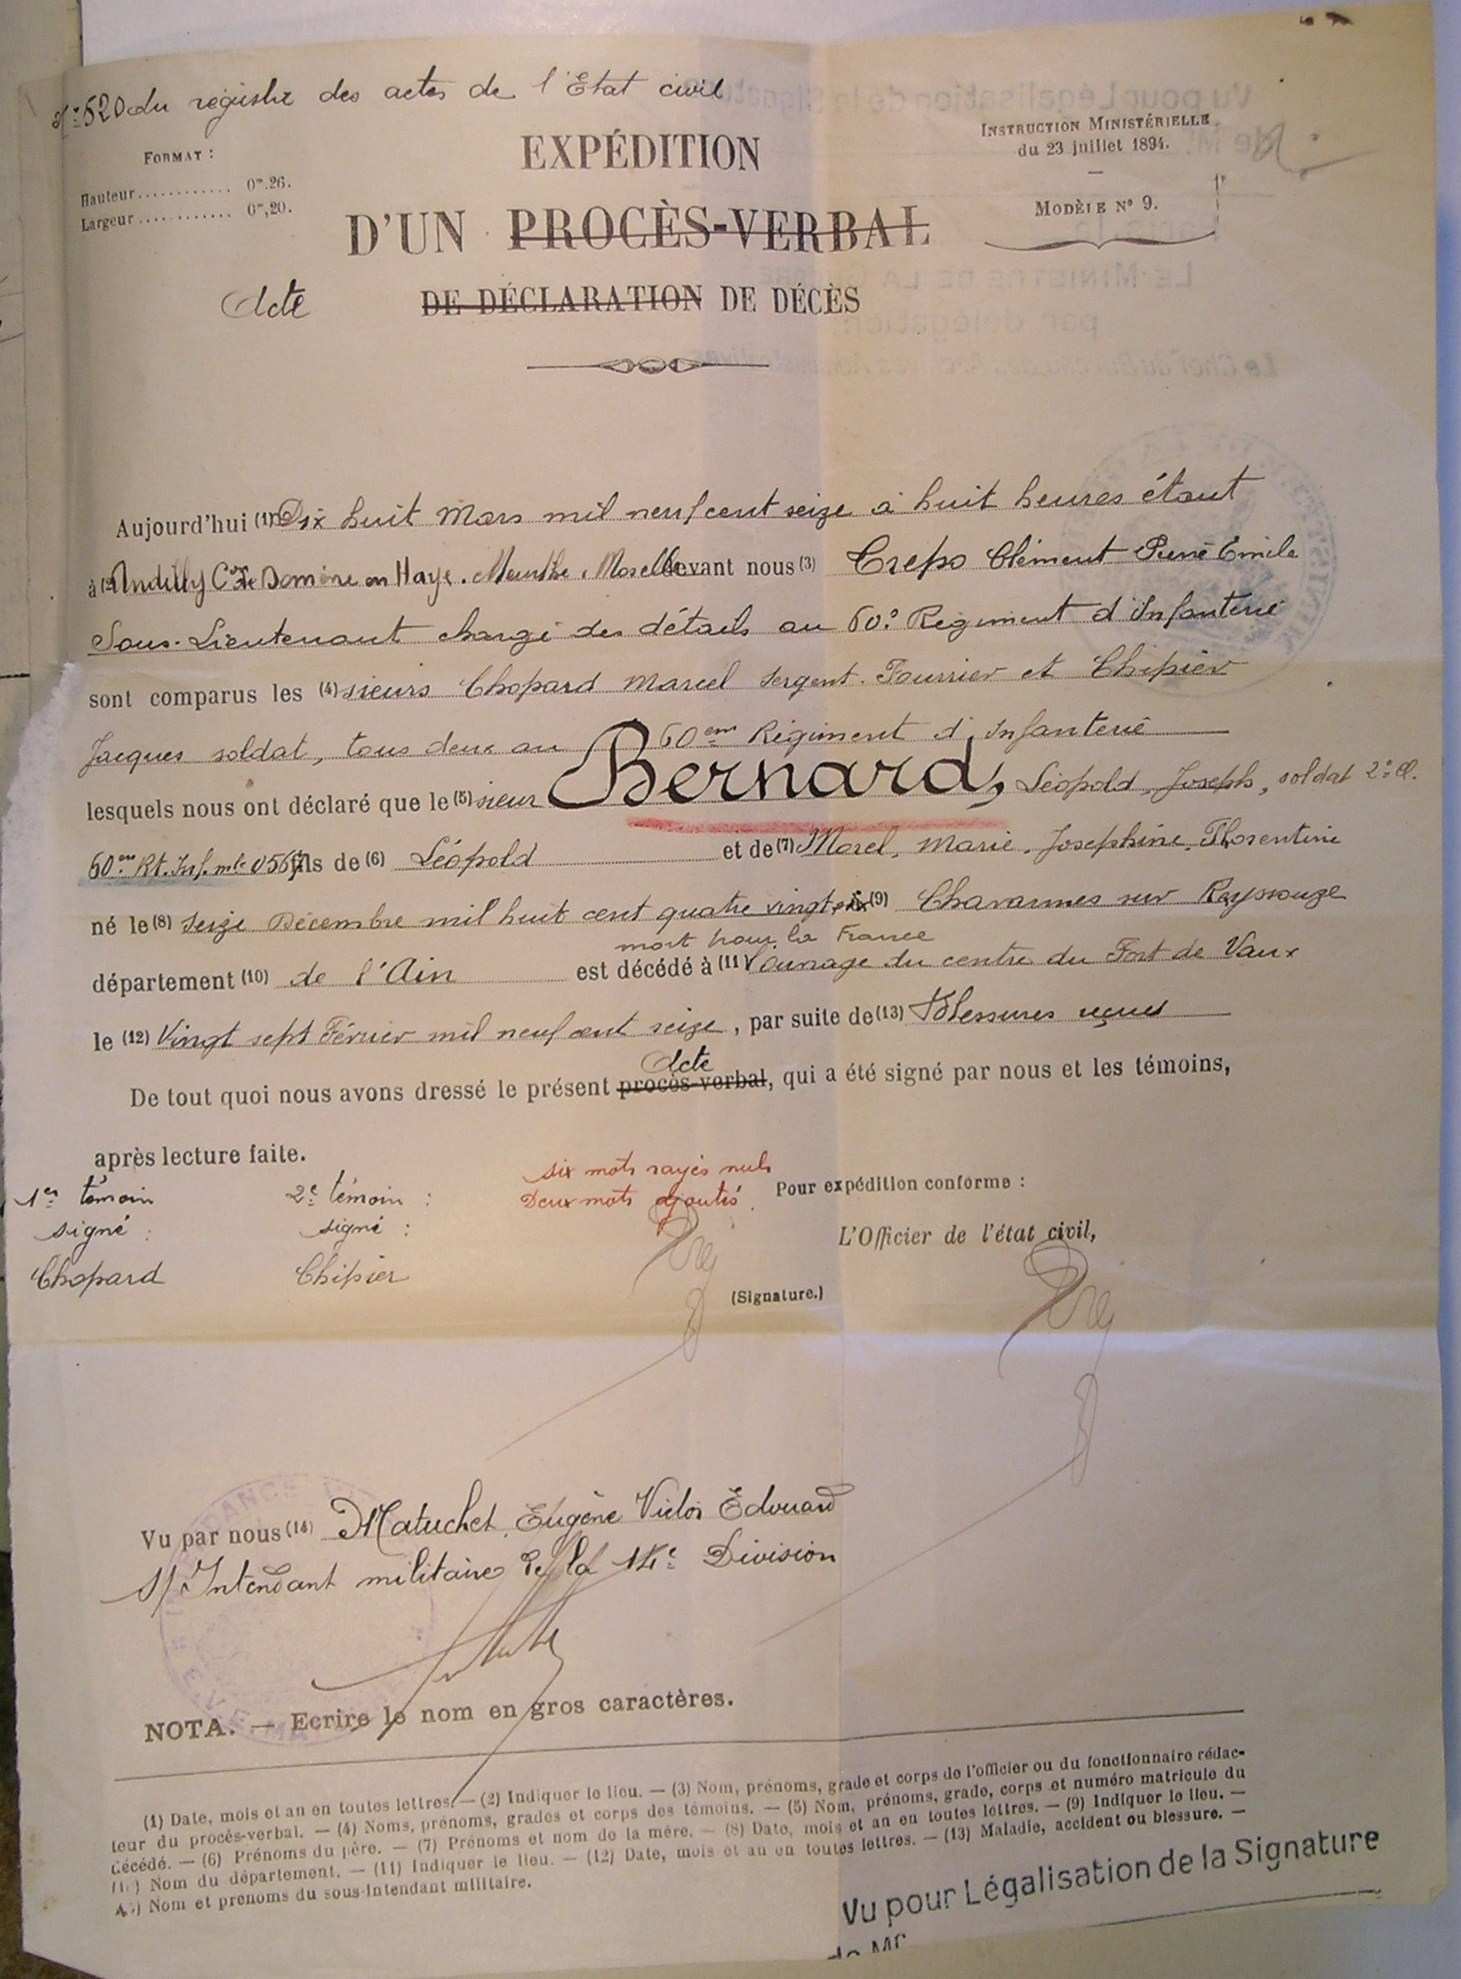 N° 520 du registre des actes de l'Etat civil
FORMAT :
Hauteur ............ 0m.26.
Largeur ............ 0m,20.
EXPÉDITION
D'UN PROCÈS-VERBAL
Acte DE DÉCLARATION DE DÉCÈS
INSTRUCTION MINISTÉRIELLE
du 23 juillet 1894.
MODÈLE N° 9.
Aujourd'hui (1) Dix huit Mars mil neuf cent seize à huit heures étant
à (2) Andilly Con de Domèvre en Haye. Meurthe. Moselle devant nous (3) Crepo Clément René Emile
Sous-Lieutenant chargé des détails au 60e Régiment d'Infanterie
sont comparus les (4) sieurs Chopard Marcel Sergent-Fourrier et Chipier
Jacques soldat, tous deux au 60eme Régiment d'Infanterie
lesquels nous ont déclaré que le (5) sieur Bernard, Léopold, Joseph, soldat 2e cl.
60eme Rt. Inf. mle fils de (6) Léopold et de (7) Morel, Marie, Josephine, Florentine
né le (8) seize Décembre mil huit cent quatre vingt (9) Chavannes sur Reyssouze
mort pour la France
département (10) de l'Ain est décédé à (11) l'ouvrage du centre du Fort de Vaux
le (12) Vingt sept Février mil neuf cent seize, par suite de (13) Blessures reçues
Acte
De tout quoi nous avons dressé le présent procès-verbal, qui a été signé par nous et les témoins,
après lecture faite.
1er témoin
signé :
Chopard
2e témoin :
signé :
Chipier
six mots rayés nuls
Deux mots ajoutés.
Pour expédition conforme :
L'Officier de l'état civil,
(Signature.)
Vu par nous (14) Matuchet Eugène Victor Edouard
S/Intendant militaire de la 14e Division
NOTA. — Ecrire le nom en gros caractères.
(1) Date, mois et an en toutes lettres. — (2) Indiquer le lieu. — (3) Nom, prénoms, grade et corps de l'officier ou du fonctionnaire rédac-
teur du procès-verbal. — (4) Noms, prénoms, grades et corps des témoins. — (5) Nom, prénoms, grade, corps et numéro matricule du
décédé. — (6) Prénoms du père. — (7) Prénoms et nom de la mère. — (8) Date, mois et an en toutes lettres. — (9) Indiquer le lieu. —
(10) Nom du département. — (11) Indiquer le lieu. — (12) Date, mois et an en toutes lettres. — (13) Maladie, accident ou blessure. —
Nom et prénoms du sous-intendant militaire.
Vu pour Légalisation de la Signature
de Mr